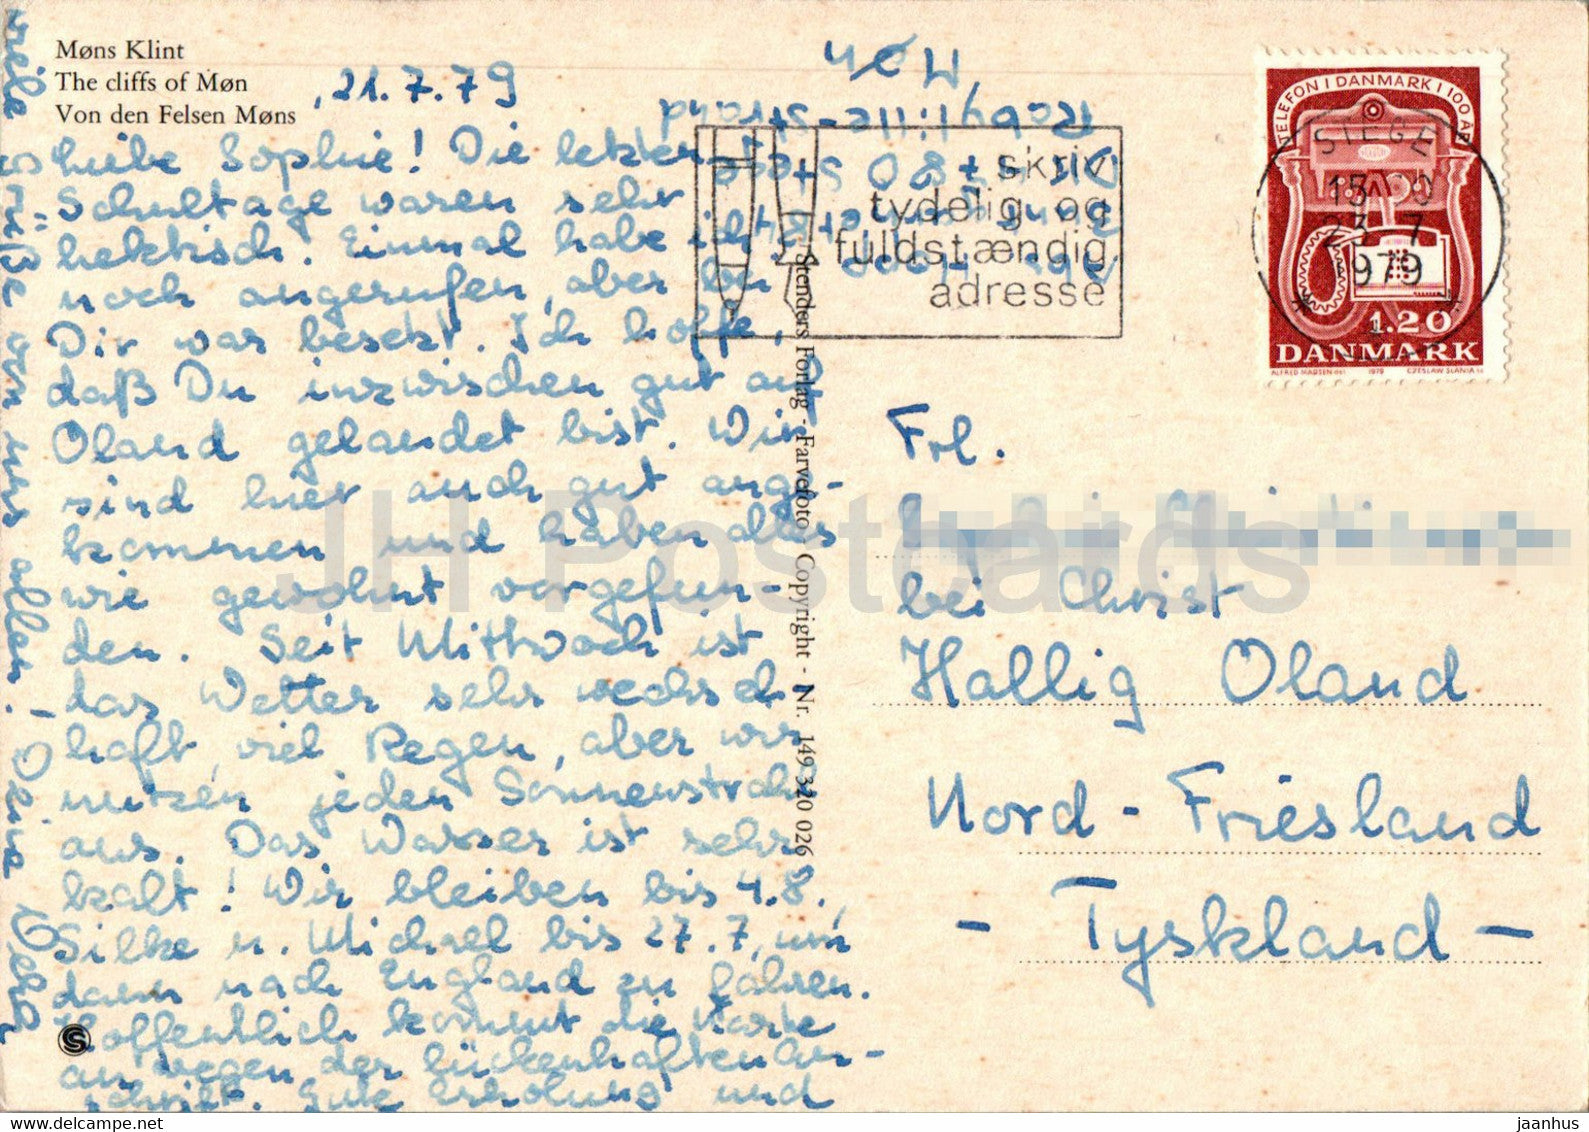 Møns Klint
The cliffs of Møn
Von den Felsen Møns
, 21.7.79
Liebe Sophie! Die letzten
Schultage waren sehr
hektisch. Einmal habe ich
noch angerufen, aber bei
Dir war besetzt. Ich hoffe,
daß Du inzwischen gut auf
Oland gelandet bist. Wir
sind hier auch gut ange-
kommen und haben alles
wie gewohnt vorgefun-
den. Seit Mittwoch ist
das Wetter sehr wechsel
haft, viel Regen, aber wir
nutzen jeden Sonnenstrahl
aus. Das Wasser ist sehr
kalt! Wir bleiben bis 4.8.,
Silke u. Michael bis 27.7, um
dann nach England zu fahren.
Hoffentlich kommt die Karte
an wegen der lückenhaften An-
schrift. Gute Erholung und
viele Grüße von uns allen. - Deine
Abs.
DK 4780 Stege
Raabylille-Strand
Møn
skriv
tydelig og
fuldstændig
adresse
Stenders Forlag - Farvefoto Copyright - Nr. 149 320 026
TELEFON I DANMARK I 100 ÅR
1.20
DANMARK
ALFRED MADSEN del. 1979 CZESLAW SLANIA sc
STEGE
15.00
23. 7
1979
Frl.
bei Christ
Hallig Oland
Nord - Friesland
- Tyskland -
S
JH Postcards
www.delcampe.net
jaanhus